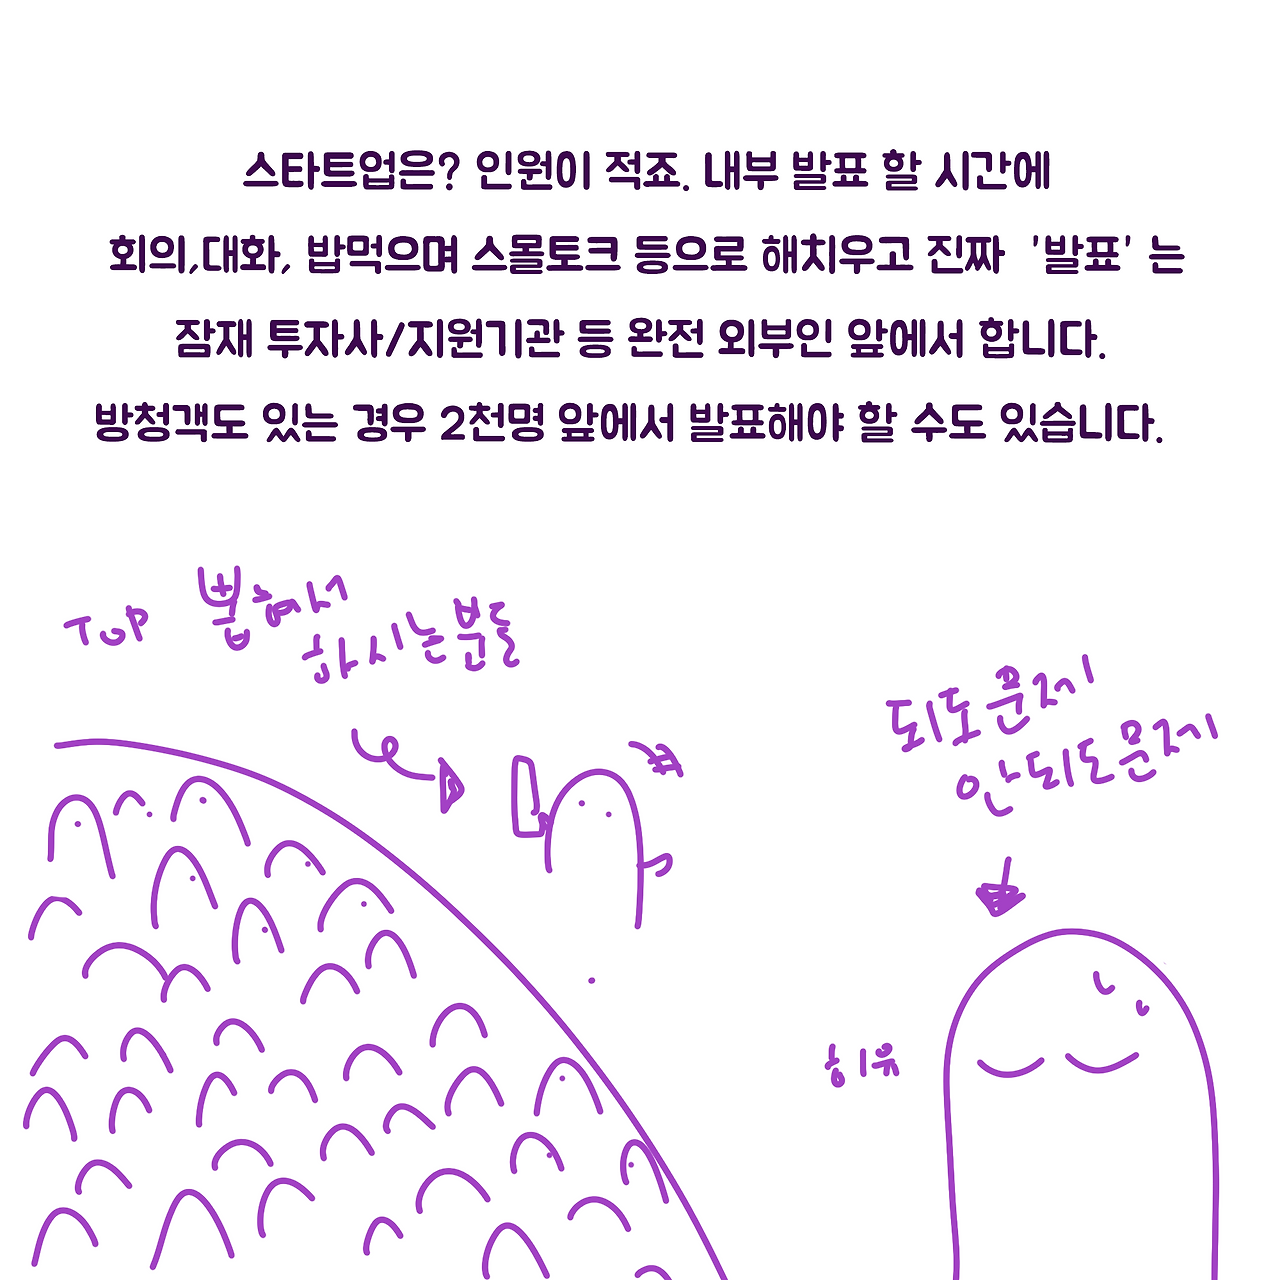 스타트업은? 인원이 적죠. 내부 발표 할 시간에
회의,대화, 밥먹으며 스몰토크 등으로 해치우고 진짜 '발표' 는
잠재 투자사/지원기관 등 완전 외부인 앞에서 합니다.
방청객도 있는 경우 2천명 앞에서 발표해야 할 수도 있습니다.
TOP 뽑혀서
하시는분들
되도문제
안되도문제
히유